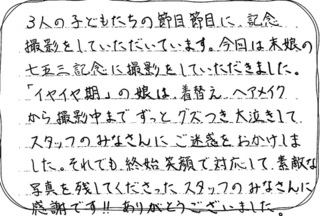 3人の子どもたちの節目節目に、記念
撮影をしていただいています。今回は末娘の
七五三記念に撮影をしていただきました。
「イヤイヤ期」の娘は、着替え、ヘアメイク
から撮影中まで ずっと グズつき 大泣きして
スタッフのみなさんに ご迷惑を おかけしま
した。それでも、終始 笑顔で 対応して、素敵な
写真を残してくださった スタッフのみなさんに
感謝です!! ありがとうございました。